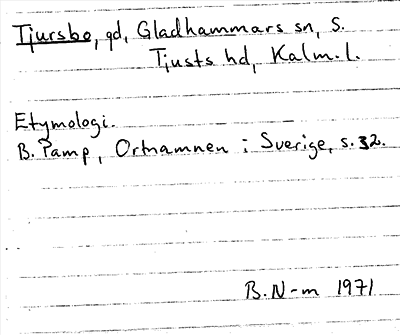 Tjursbo, gd, Gladhammars sn, S.
Tjusts hd, Kalm. l.
Etymologi.
B. Pamp, Ortnamnen i Sverige, s. 32.
B. N-m 1971